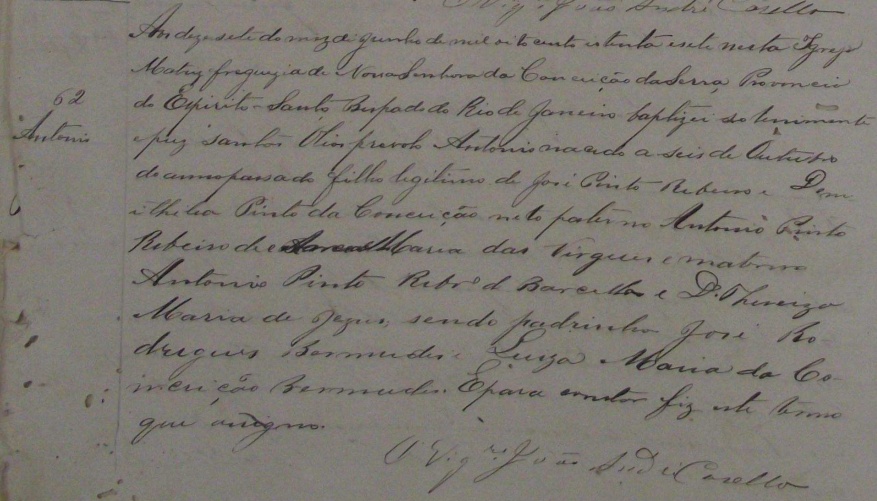 O Vigº João André Casella
Ao dezesete do mez de Junho de mil oito cento e setenta e sete nesta Igreja
Matriz freguezia de Nossa Senhora da Conceição da Serra, Provincia
do Espirito-Santo Bispado do Rio de Janeiro baptizei solenimente
62
Antonio
e puz santos Olios parvolo Antonio nacido a seis de Outubro
do anno passado filho legitimo de José Pinto Ribeiro e Dom
ithilia Pinto da Conceição neto paterno Antonio Pinto
Ribeiro de e Maria das Virgens e materno
Antonio Pinto Ribrº d Barcellos e D. Thereiza
Maria de Jezus, sendo padrinhos José Ro-
drigues Bermudes e Luiza Maria da Co-
nceição Bermudes. E para constar fiz este termo
que assigno.
O Vigrº João André Casella